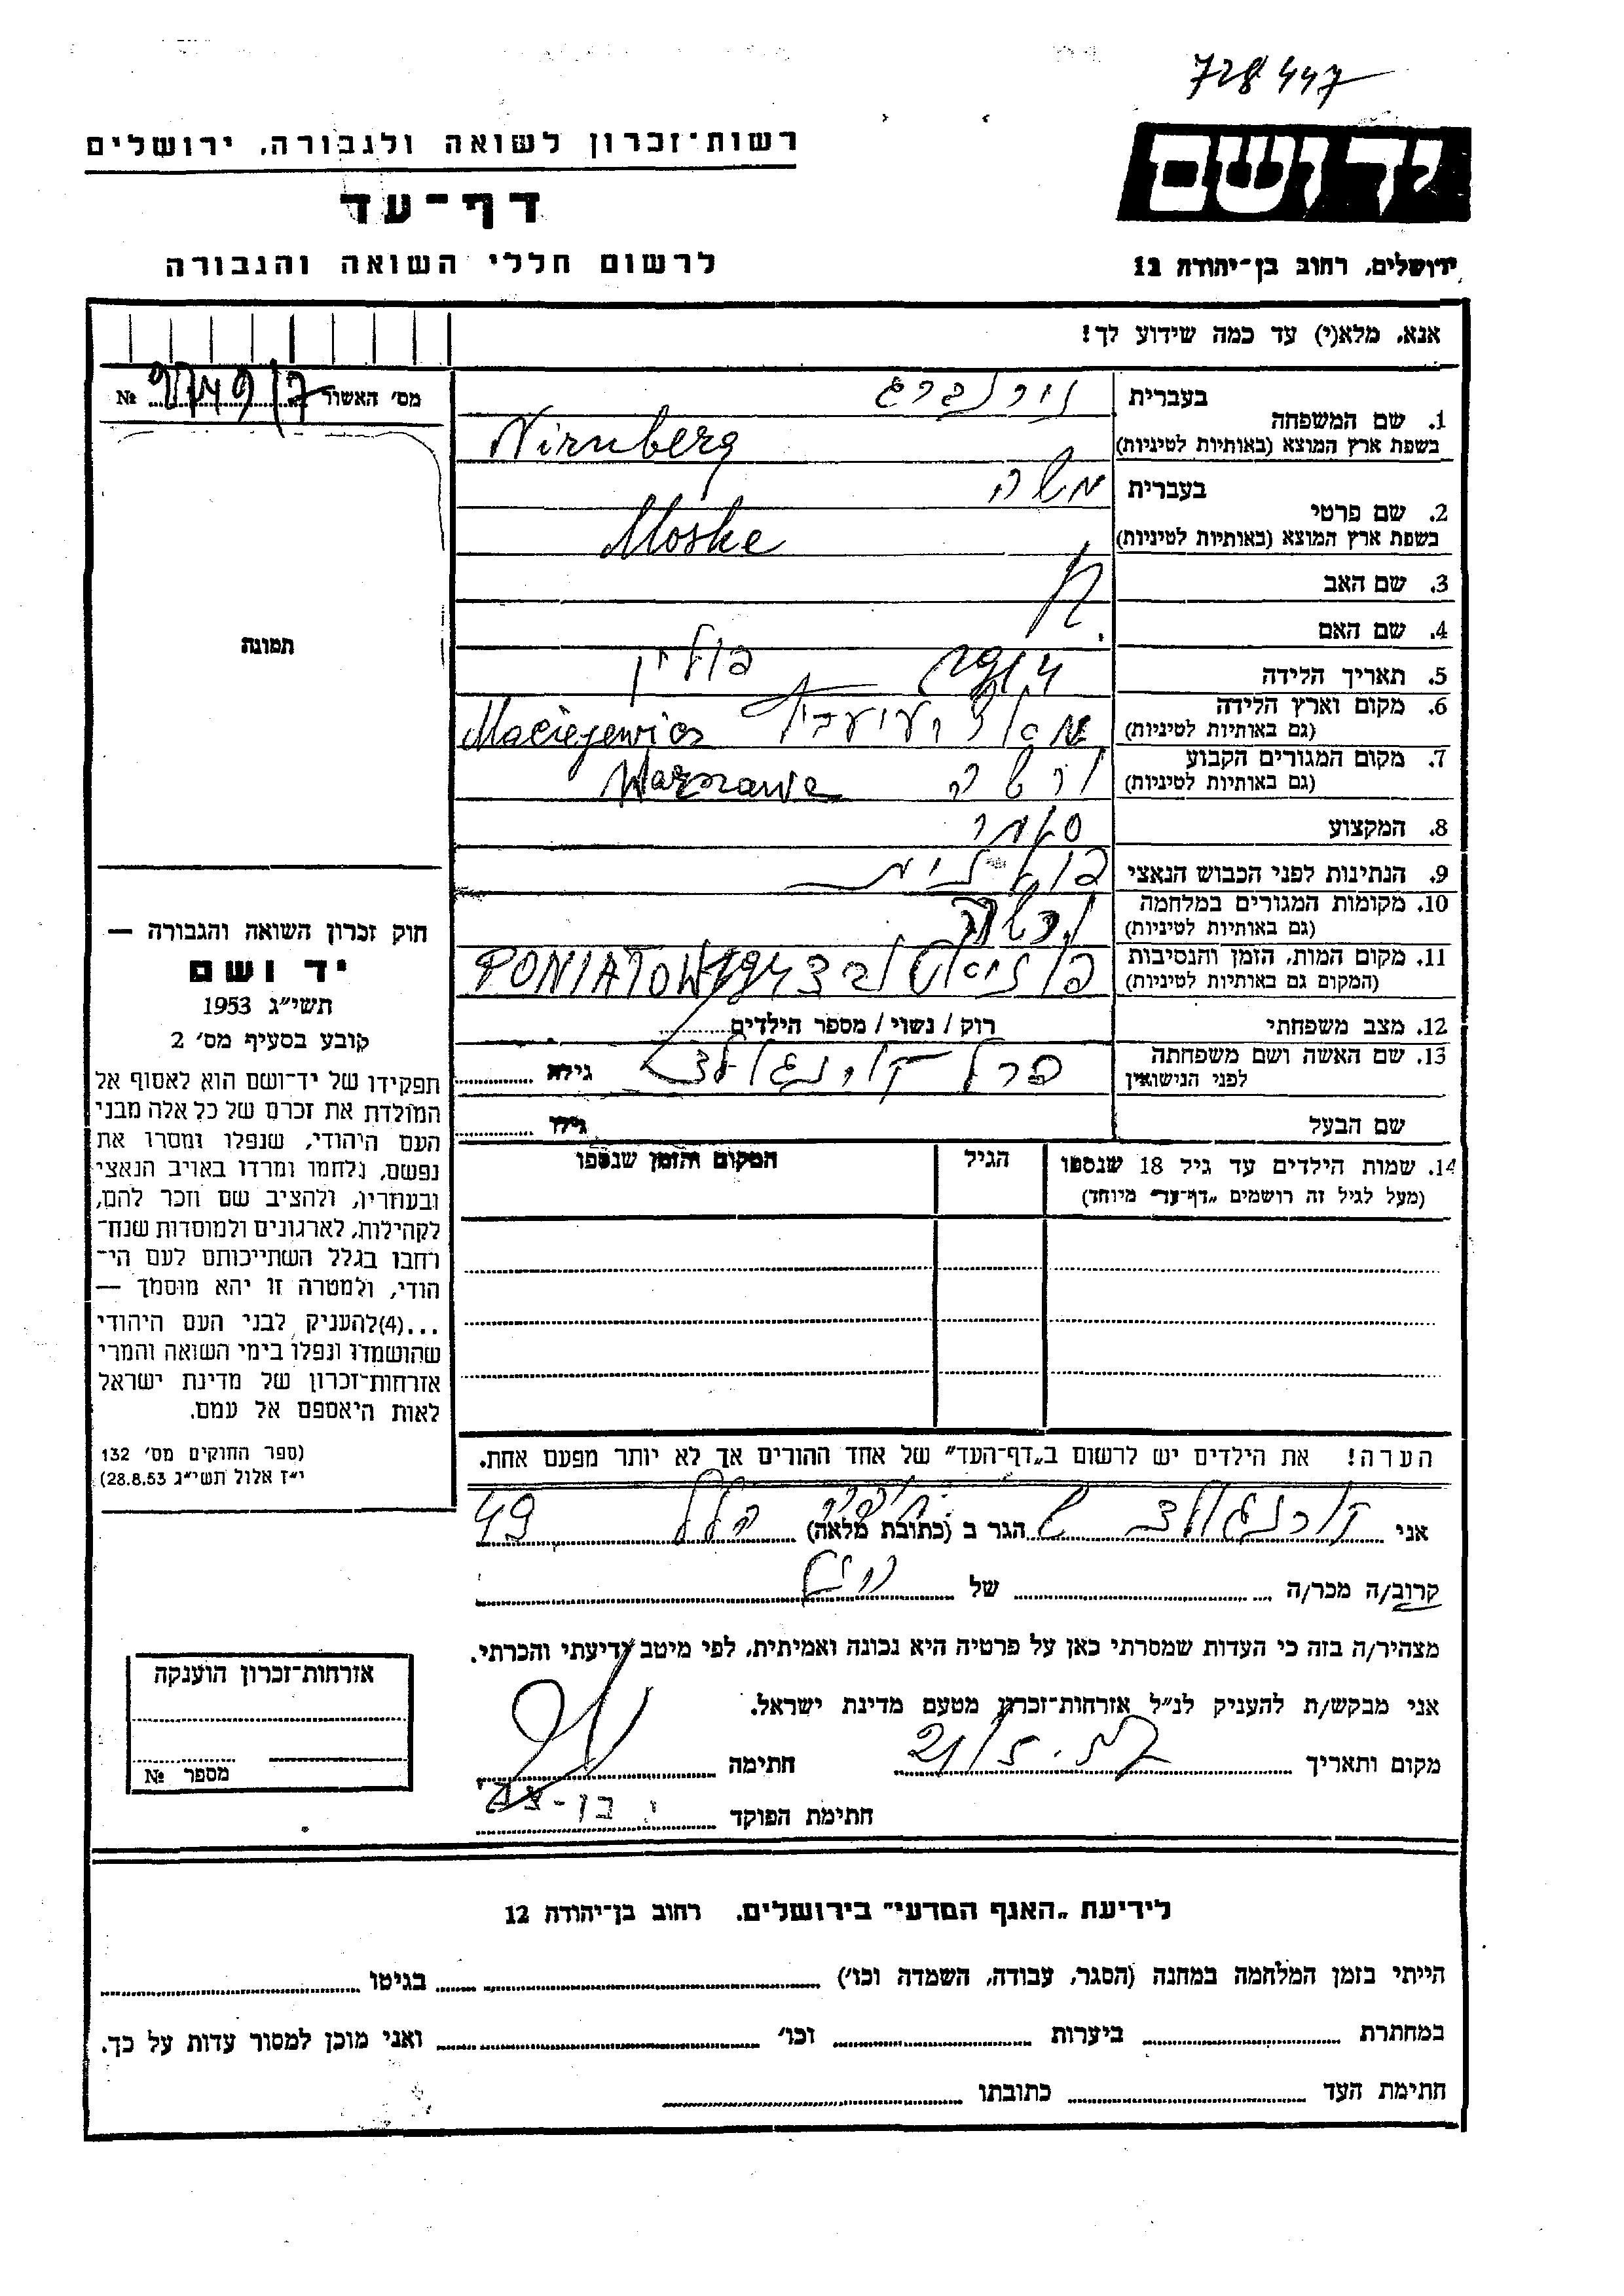 728447
רשות־זכרון לשואה ולגבורה, ירושלים
יד ושם
דף־עד
לרשום חללי השואה והגבורה
ירושלים, רחוב בן־יהודה 12
אנא, מלא(י) עד כמה שידוע לך!
מס' האשור №
1. שם המשפחה
בעברית נירנברג
בשפת ארץ המוצא (באותיות לטיניות) Nirnberg
2. שם פרטי
בעברית משה
בשפת ארץ המוצא (באותיות לטיניות) Moshe
תמונה
3. שם האב
4. שם האם
5. תאריך הלידה
6. מקום וארץ הלידה פולין
(גם באותיות לטיניות) Maciejewics
7. מקום המגורים הקבוע ורשה
(גם באותיות לטיניות) Warszawa
8. המקצוע סוחר
9. הנתינות לפני הכבוש הנאצי פולנית
10. מקומות המגורים במלחמה ורשה
(גם באותיות לטיניות)
11. מקום המות, הזמן והנסיבות
(המקום גם באותיות לטיניות) PONIATOW
12. מצב משפחתי רוק / נשוי / מספר הילדים
13. שם האשה ושם משפחתה
לפני הנישואין פרל גילה
שם הבעל גילו
14. שמות הילדים עד גיל 18 שנספו הגיל המקום והזמן שנספו
(מעל לגיל זה רושמים „דף־עד" מיוחד)
חוק זכרון השואה והגבורה —
יד ושם
תשי"ג 1953
קובע בסעיף מס' 2
תפקידו של יד־ושם הוא לאסוף אל
המולדת את זכרם של כל אלה מבני
העם היהודי, שנפלו ומסרו את
נפשם, נלחמו ומרדו באויב הנאצי
ובעוזריו, ולהציב שם וזכר להם,
לקהילות, לארגונים ולמוסדות שנח־
רחבו בגלל השתייכותם לעם הי־
הודי, ולמטרה זו יהא מוסמך —
...(4)להעניק לבני העם היהודי
שהושמדו ונפלו בימי השואה והמרי
אזרחות־זכרון של מדינת ישראל
לאות היאספם אל עמם.
(ספר החוקים מס' 132
י"ז אלול תשי"ג 28.8.53)
הערה! את הילדים יש לרשום ב„דף־העד" של אחד ההורים אך לא יותר מפעם אחת.
אני הגר ב (כתובת מלאה) הלל 49
קרוב/ה מכר/ה של
מצהיר/ה בזה כי העדות שמסרתי כאן על פרטיה היא נכונה ואמיתית, לפי מיטב ידיעתי והכרתי.
אני מבקש/ת להעניק לנ"ל אזרחות־זכרון מטעם מדינת ישראל.
מקום ותאריך חתימה
חתימת הפוקד
אזרחות־זכרון הוענקה
מספר №
לידיעת „האגף המדעי" בירושלים, רחוב בן־יהודה 12
הייתי בזמן המלחמה במחנה (הסגר, עבודה, השמדה וכו') בגיטו
במחתרת ביערות וכו' ואני מוכן למסור עדות על כך.
חתימת העד כתובתו